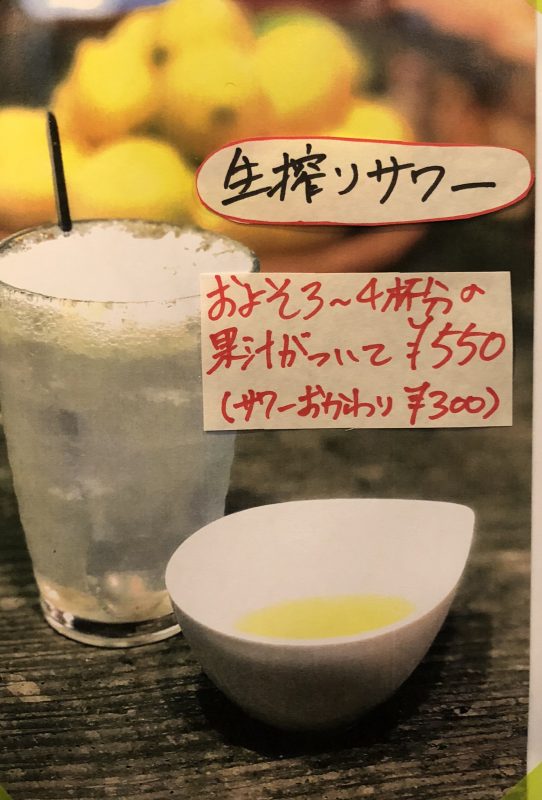 生搾りサワー
およそ3～4杯分の
果汁がついて ¥550
(サワーおかわり ¥300)